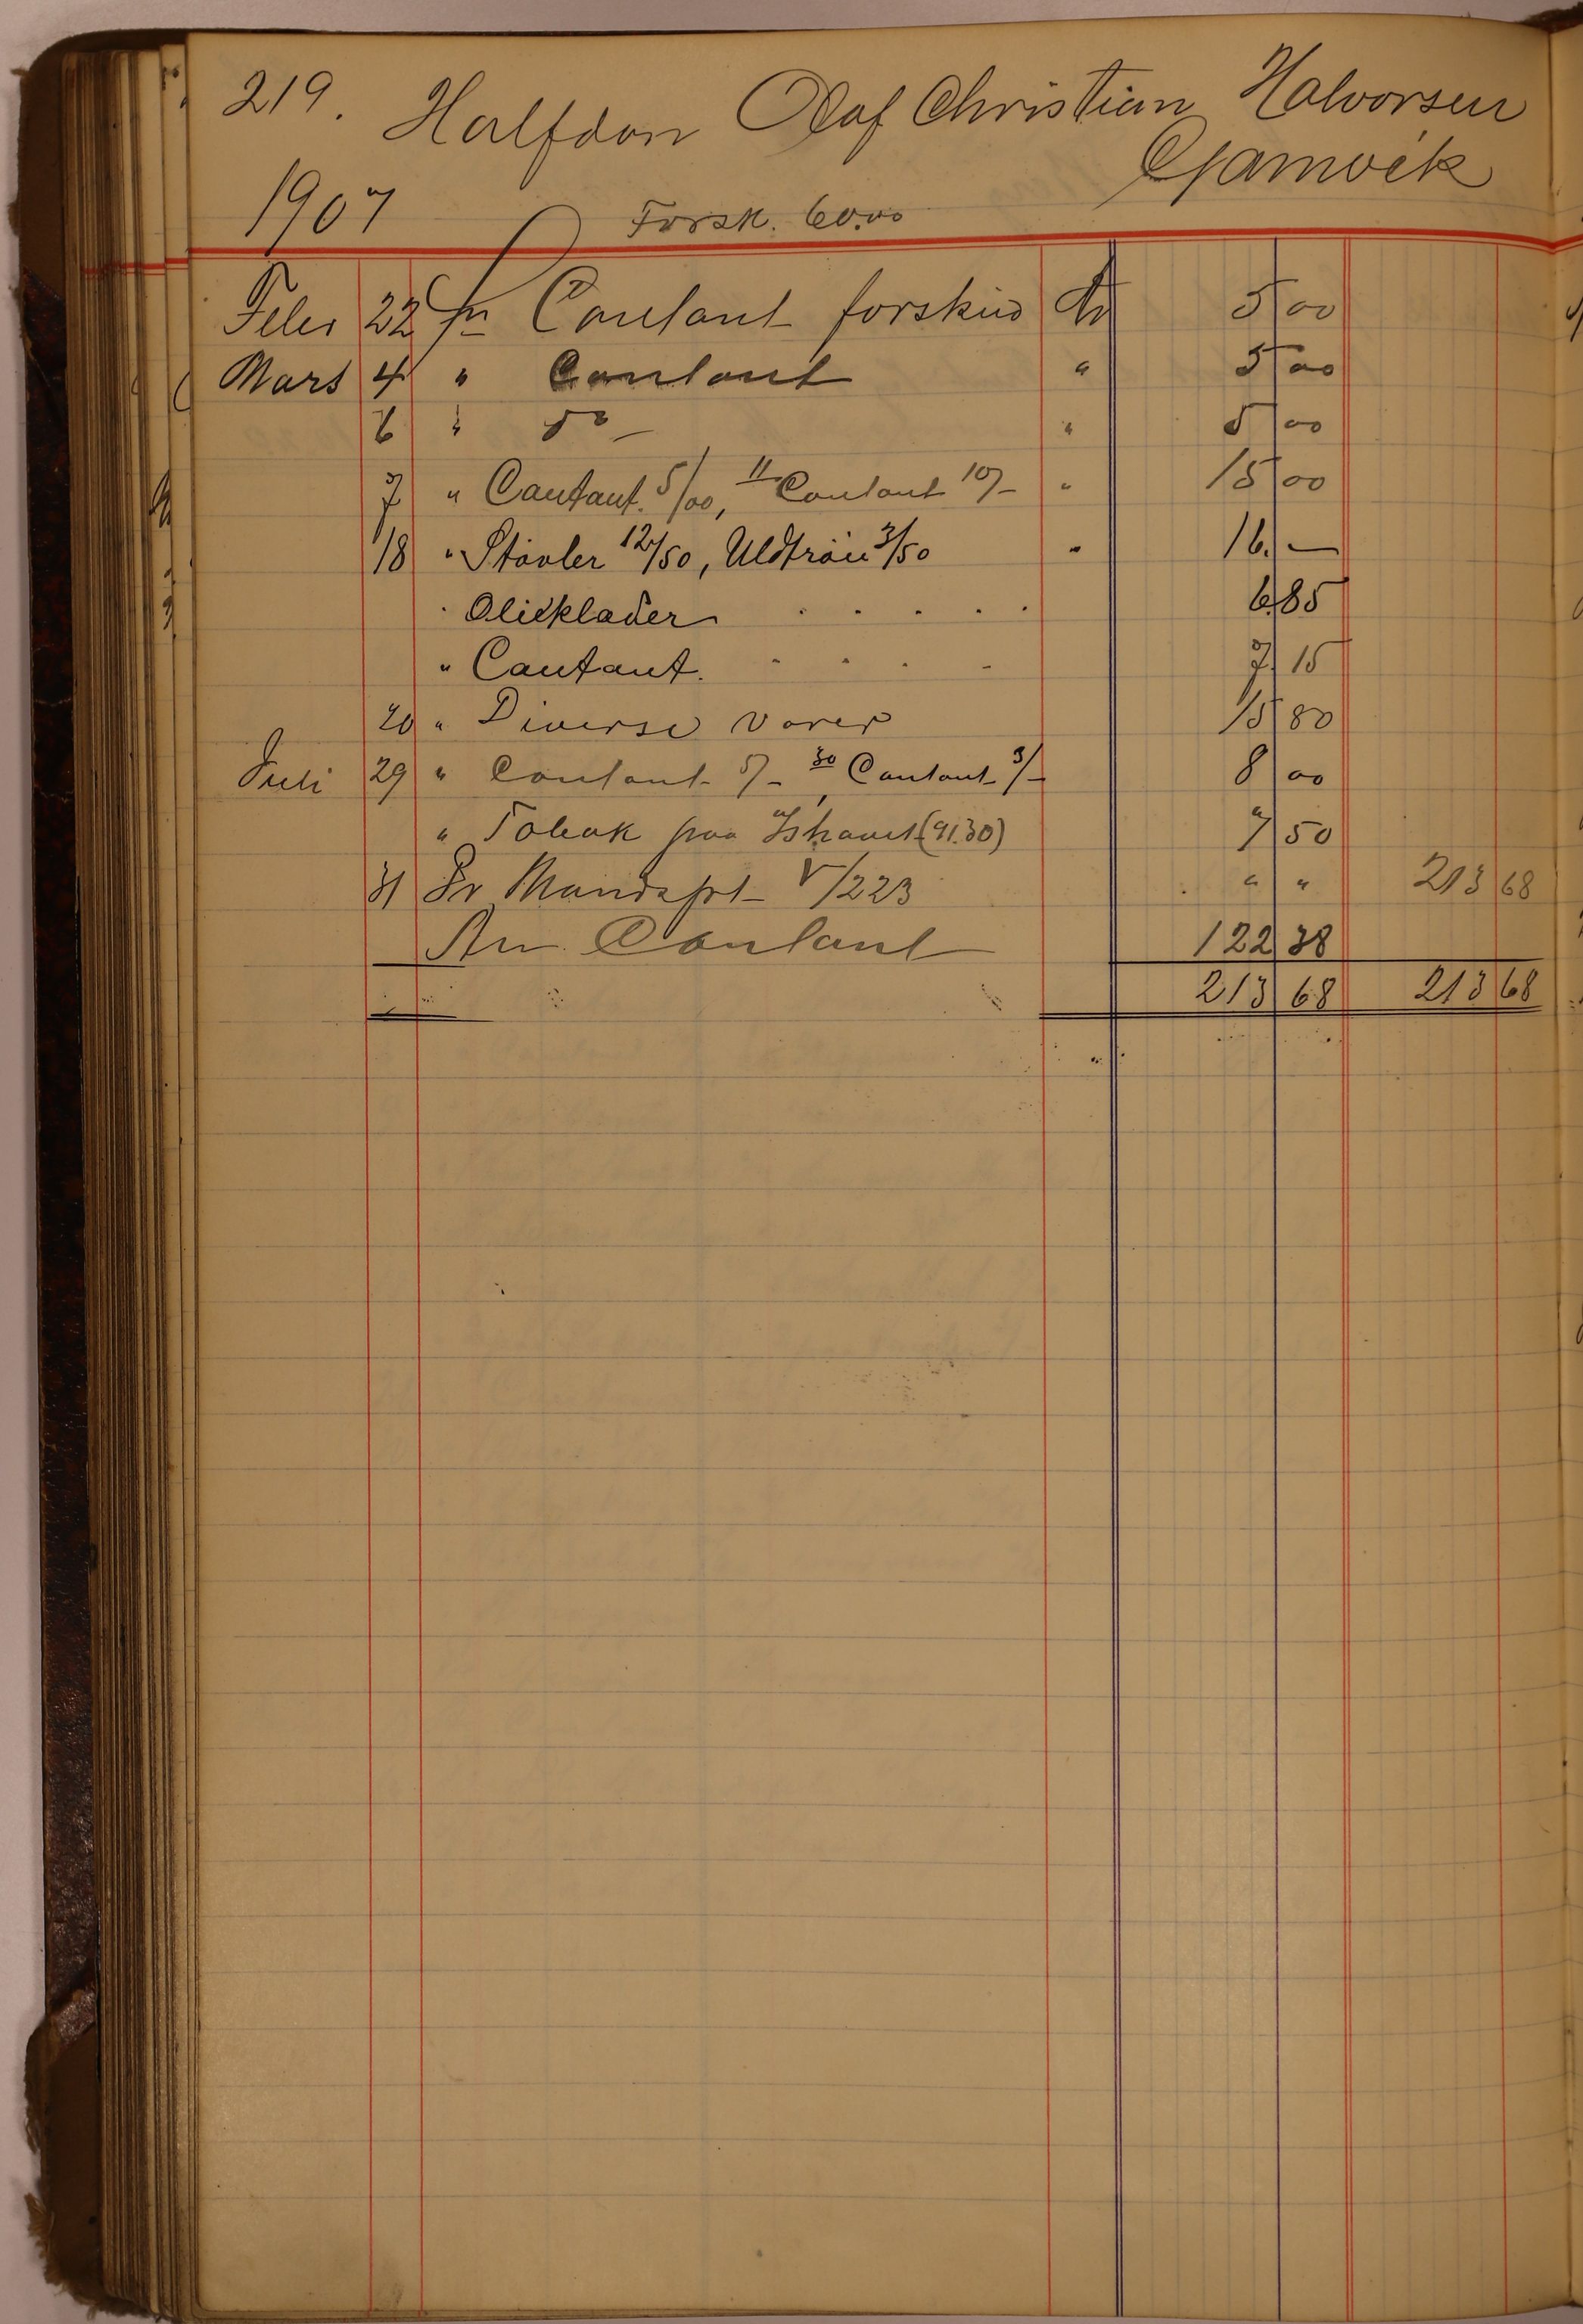 219. Halfdan Olaf Christian Halvorsen
Gamvik
1907 Forsk. 60.00
Febr 22 pr Contant forskud Kr 5 00
Mars 4 " Contant " 5 00
6 " do — " 5 00
7 " Contant. 5/00, 11 Contant 10/- " 15 00
18 " Støvler 12/50, Uldtrøie 3/50 " 16. —
" Olieklæder . . . . . 6 85
" Contant. . . . . 7 15
20 " Diverse varer 15 80
Juli 29 " Contant 5/-, 30 Contant 3/- 8 00
" Tobak paa Ishavet (91.30) 7 50
31 Pr Mandspt V/223 " " 213 68
An Contant 122 38
213 68 213 68